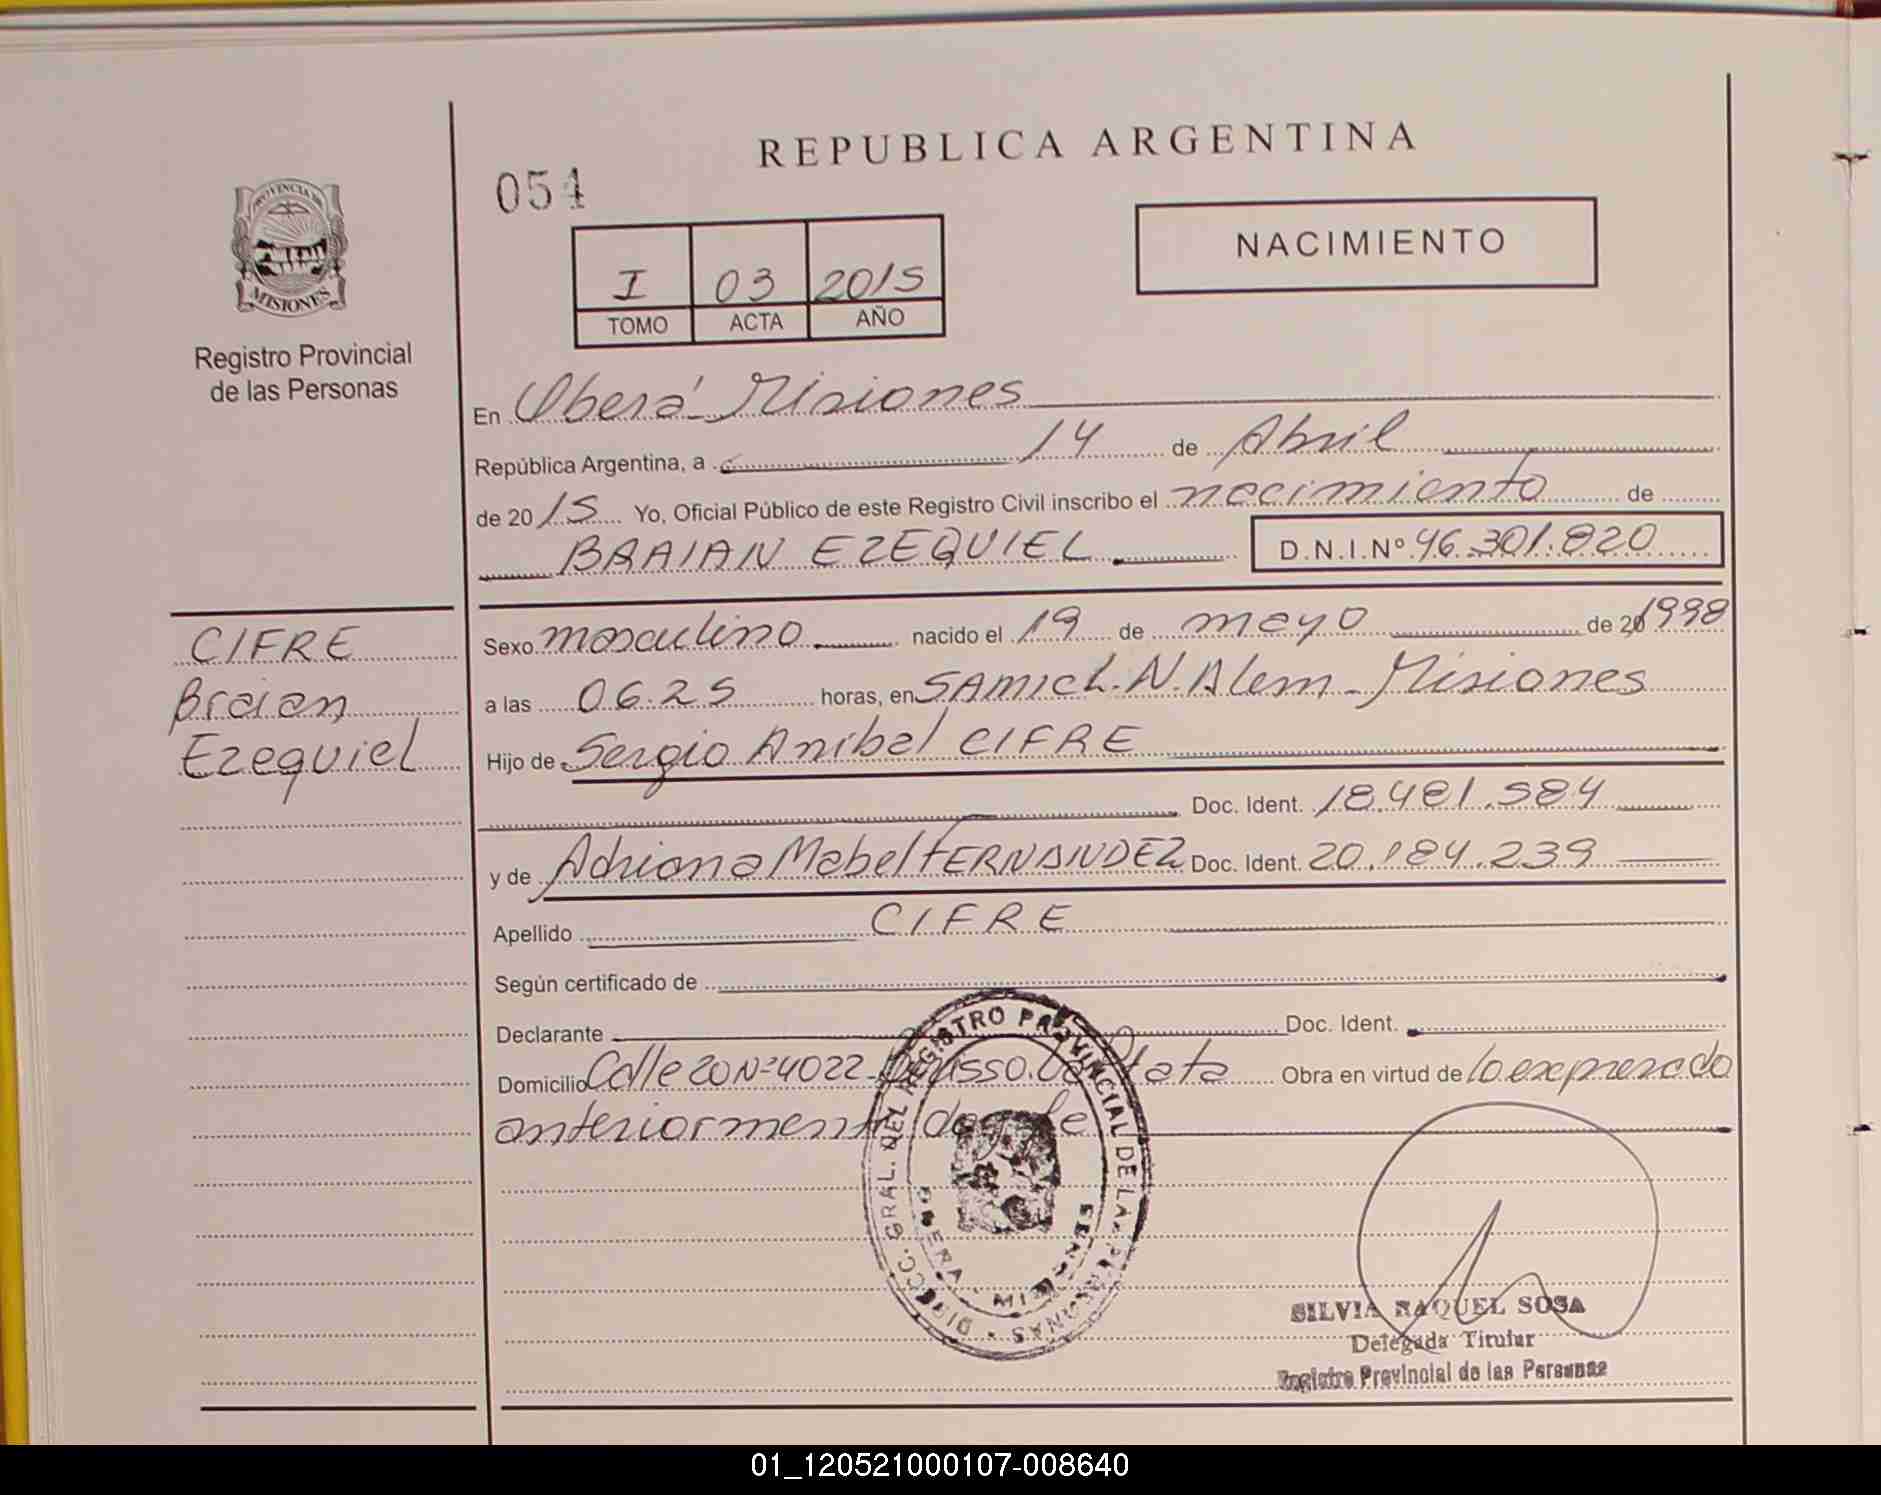 REPUBLICA ARGENTINA
054
PROVINCIA DE
MISIONES
Registro Provincial
de las Personas
I 03 2015
TOMO ACTA AÑO
NACIMIENTO
En Oberá Misiones
República Argentina, a 14 de Abril
de 2015 Yo, Oficial Público de este Registro Civil inscribo el nacimiento de
BRAIAN EZEQUIEL D.N.I.Nº 46.301.820
CIFRE
Braian
Ezequiel
Sexo masculino nacido el 19 de mayo de 20 1998
a las 06.25 horas, en SAMIC L.N.Alem - Misiones
Hijo de Sergio Anibal CIFRE
Doc. Ident. 18.481.584
y de Adriana Mabel FERNANDEZ Doc. Ident. 20.184.239
Apellido CIFRE
Según certificado de
Declarante Doc. Ident.
Domicilio Calle 20 Nº 4022 La Plata Obra en virtud de lo expresado
anteriormente
DIRECC. GRAL. DEL REGISTRO PROVINCIAL DE LAS PERSONAS
OBERA MISIONES
SILVIA RAQUEL SOSA
Delegada Titular
Registro Provincial de las Personas
01_120521000107-008640